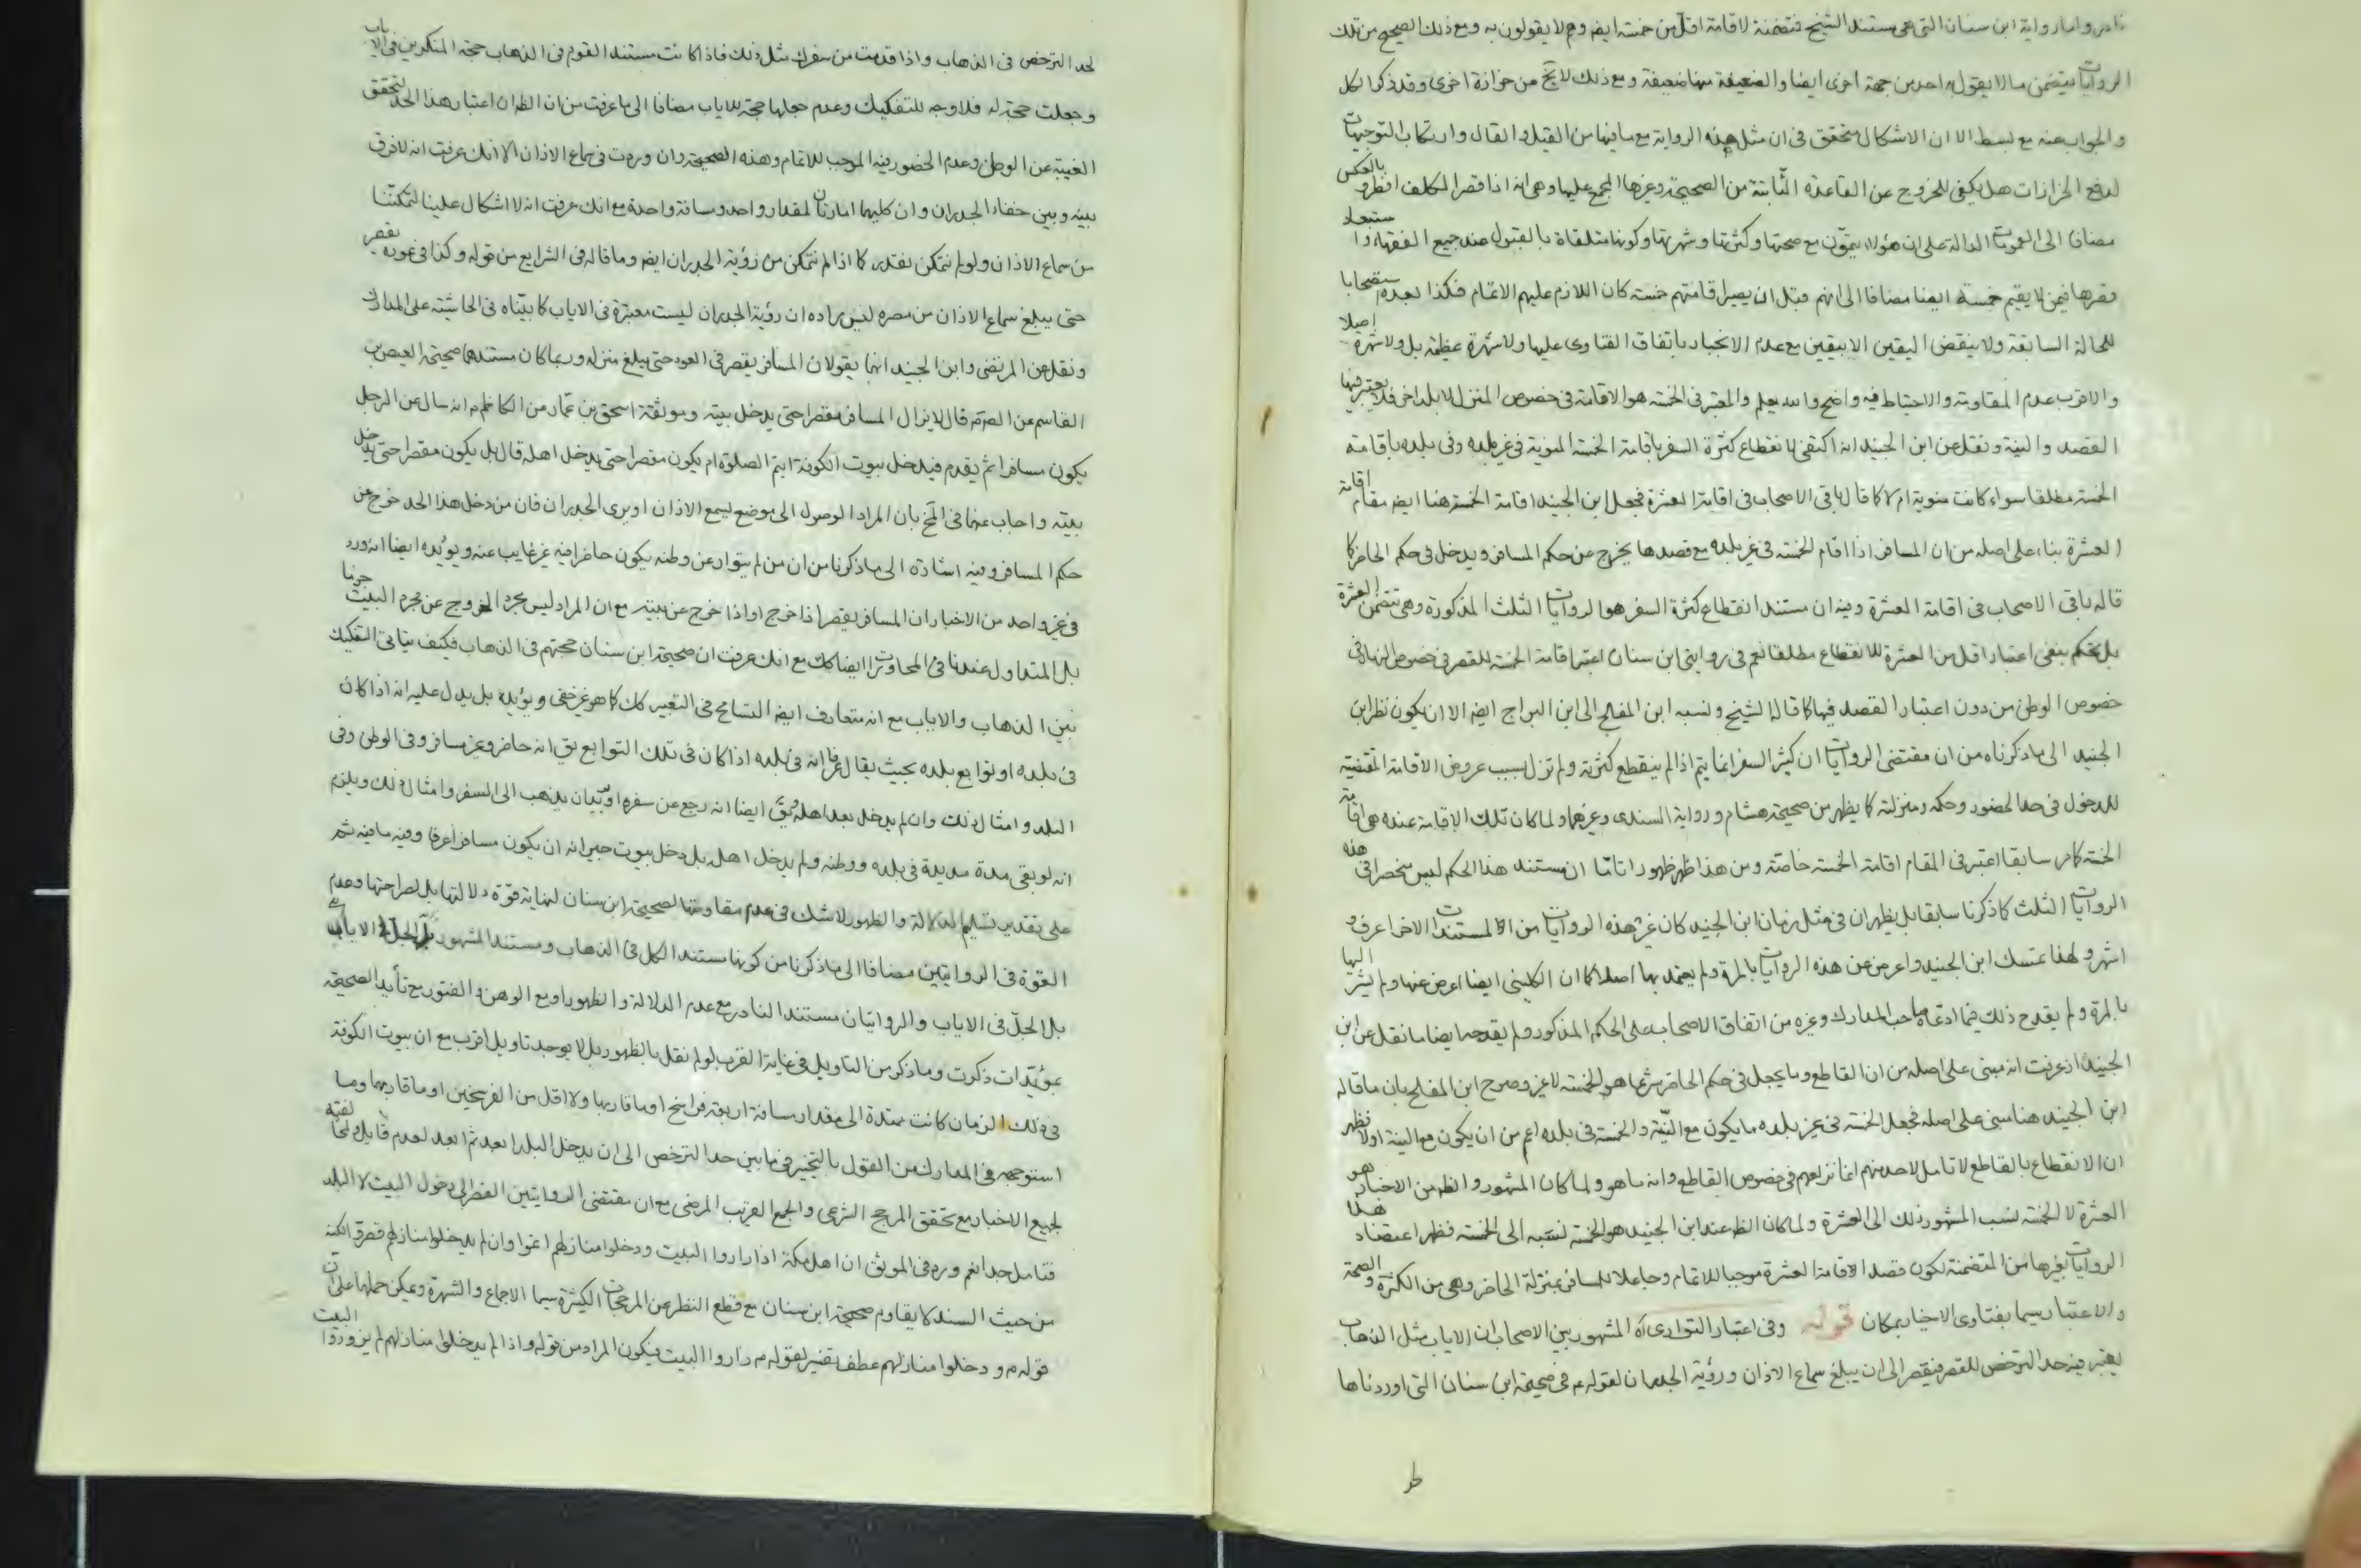 نادر واما رواية ابن سنان التي هي مستند الشيخ فتضمنة لاقامة اقل من خمسة ايضا وهم لا يقولون به ومع ذلك الصحيح من تلك
الروايات يتضمن ما لا يقول به احد من جهة اخرى ايضا والضعيفة منها ضعيفة ومع ذلك لا يخ من حزازة اخرى وقد ذكر الكل
والجواب عنه مع بسط الا ان الاشكال متحقق في ان مثل هذه الرواية مع ما فيها من القيل والقال وارتكاب التوجيهات
لدفع الحزازات هل يكفي للخروج عن القاعدة الثابتة من الصحيحة وغيرها المجمع عليها وهي انه اذا قصر المكلف افطر وبالعكس
مضافا الى العمومات الدالة على ان هؤلاء يتمون مع صحتها وكثرتها وشهرتها وكونها متلقاة بالقبول عند جميع الفقهاء واستبعاد
قصرها فيمن لا يقيم خمسة ايضا مضافا الى انهم قبل ان يصير اقامتهم خمسة كان اللازم عليهم الاتمام فكذا بعده استصحابا
للحالة السابقة ولا ينقض اليقين الا بيقين مع عدم الانجبار باتفاق الفتاوى عليها ولا شهرة عظيمة بل ولا شهرة اصلا
والاقرب عدم المقاومة والاحتياط فيه واضح والله يعلم والمعتبر في الخمسة هو الاقامة في خصوص المنزل لا بلد اخر فلا يعتبر فيها
القصد والنية ونقل عن ابن الجنيد انه اكتفى لانقطاع كثرة السفر باقامة الخمسة المنوية في غير بلده وفي بلده باقامة
الخمسة مطلقا سواء كانت منوية ام لا كما قال باقي الاصحاب في اقامة العشرة فجعل ابن الجنيد اقامة الخمسة هنا ايضا مقام اقامة
العشرة بناء على اصله من ان المسافر اذا اقام الخمسة في غير بلده مع قصدها يخرج عن حكم المسافر ويدخل في حكم الحاضر كما
قاله باقي الاصحاب في اقامة العشرة وفيه ان مستند انقطاع كثرة السفر هو الروايات الثلث المذكورة وهي تتضمن العشرة
بل تحكم بنفي اعتبار اقل من العشرة للانقطاع مطلقا نعم في روايتي ابن سنان اعتبر اقامة الخمسة للقصر في خصوص النهار وفي
خصوص الوطن من دون اعتبار القصد فيها كما قاله الشيخ ونسبه ابن المفلح الى ابن البراج ايضا الا ان يكون نظر ابن
الجنيد الى ما ذكرناه من ان مقتضى الروايات ان كثير السفر انما يتم اذا لم ينقطع كثرته ولم تزل بسبب عروض الاقامة المقتضية
للدخول في حد الحضور وحكمه ومنزلته كما يظهر من صحيحة هشام ورواية السندي وغيرهما ولما كان تلك الاقامة عنده هي اقامة
الخمسة كما مر سابقا اعتبر في المقام اقامة الخمسة خاصة ومن هذا ظهر ظهورا تاما ان مستند هذا الحكم ليس منحصرا في هذه
الروايات الثلث كما ذكرنا سابقا بل يظهر ان في مثل زمان ابن الجنيد كان غير هذه الروايات من المستندات الاخر اعرف و
اشهر ولهذا تمسك ابن الجنيد واعرض عن هذه الروايات بالمرة ولم يعتمد بها اصلا كما ان الكليني ايضا اعرض عنها ولم يشر اليها
بالمرة ولم يقدح ذلك فيما ادعاه صاحب المدارك وغيره من اتفاق الاصحاب على الحكم المذكور ولم يقدحه ايضا ما نقل عن ابن
الجنيد اذ عرفت انه مبني على اصله من ان القاطع وما يجعل في حكم الحاضر شرعا هو الخمسة لا غير وصرح ابن المفلح بان ما قاله
ابن الجنيد هنا مبني على اصله فجعل الخمسة في غير بلده ما يكون مع النية والخمسة في بلده اعم من ان يكون مع النية او لا فظهر
ان الانقطاع بالقاطع لا تامل لاحد منهم انما نزاعهم في خصوص القاطع وانه ما هو ولما كان المشهور والظ من الاخبار هو
العشرة لا الخمسة نسب المشهور ذلك الى العشرة ولما كان الظ عند ابن الجنيد هو الخمسة نسبه الى الخمسة فظهر اعتضاد هذه
الروايات بغيرها من المتضمنة لكون قصد اقامة العشرة موجبا للاتمام وجاعلا للمسافر بمنزلة الحاضر وهي من الكثرة والصحة
والاعتبار سيما بفتاوى الاخيار بمكان قوله وفي اعتبار التوارى اه المشهور بين الاصحاب ان الاياب مثل الذهاب
يعتبر فيه حد الترخص للقصر فيقصر الى ان يبلغ سماع الاذان ورؤية الجدران لقوله ع في صحيحة ابن سنان التي اوردناها
ط
لحد الترخص في الذهاب واذا قدمت من سفرك مثل ذلك فاذا كانت مستند القوم في الذهاب حجة المنكرين في الاياب
وجعلت حجة له فلا وجه للتفكيك وعدم جعلها حجة للاياب مضافا الى ما عرفت من ان الظ ان اعتبار هذا الحد لتحقق
الغيبة عن الوطن وعدم الحضور فيه الموجب للاتمام وهذه الصحيحة وان وردت في سماع الاذان الا انك عرفت انه لا فرق
بينه وبين خفاء الجدران وان كليهما امارتان لمقدار واحد ومسافة واحدة مع انك عرفت انه لا اشكال علينا لتمكننا
من سماع الاذان ولو لم نتمكن نقدر كما اذا لم نتمكن من رؤية الجدران ايضا وما قاله في الشرايع من قوله وكذا في عوده يقصر
حتى يبلغ سماع الاذان من مصره ليس مراده ان رؤية الجدران ليست معتبرة في الاياب كما بيناه في الحاشية على المدارك
ونقل عن المرتضى وابن الجنيد انهما يقولان المسافر يقصر في العود حتى يبلغ منزله وربما كان مستندهما صحيحة العيص بن
القاسم عن الص ع قال لا يزال المسافر مقصرا حتى يدخل بيته وموثقة اسحق بن عمار عن الكاظم ع انه سال عن الرجل
يكون مسافرا ثم يقدم فيدخل بيوت الكوفة ايتم الصلوة ام يكون مقصرا حتى يدخل اهله قال بل يكون مقصرا حتى يدخل
بيته واجاب عنهما في المخ بان المراد الوصول الى موضع يسمع الاذان او يرى الجدران فان من دخل هذا الحد خرج عن
حكم المسافر وفيه اشارة الى ما ذكرنا من ان من لم يتوار عن وطنه يكون حاضرا فيه غير غايب عنه ويؤيده ايضا انه ورد
في غير واحد من الاخبار ان المسافر يقصر اذا خرج او اذا خرج عن بيته مع ان المراد ليس مجرد الخروج عن مجرد البيت جزما
بل المتداول عندنا في المحاورات ايضا كك مع انك عرفت ان صحيحة ابن سنان حجتهم في الذهاب فكيف يتاتى التفكيك
بين الذهاب والاياب مع انه متعارف ايضا التسامح في التعبير كك كما هو غير خفي ويؤيده بل يدل عليه انه اذا كان
في بلده او توابع بلده بحيث يقال عرفا انه في بلده اذا كان في تلك التوابع يق انه حاضر وغير مسافر وفي الوطن وفي
البلد وامثال ذلك وان لم يدخل بعد اهله ويق ايضا انه رجع عن سفره او يريد ان يذهب الى السفر وامثال ذلك ويلزم
انه لو بقي مدة مديدة في بلده ووطنه ولم يدخل اهله بل دخل بيوت جيرانه ان يكون مسافرا عرفا وفيه ما فيه ثم
على تقدير تسليم الدلالة والظهور لا شك في عدم مقاومتها لصحيحة ابن سنان لنهاية قوة دلالتها بل صراحتها وعدم
القوة في الروايتين مضافا الى ما ذكرنا من كونها مستند الكل في الذهاب ومستند المشهور بل الجل في الاياب
بل الجل في الاياب والروايتان مستند النادر مع عدم الدلالة والظهور او مع الوهن والفتور مع تأيد الصحيحة
بمؤيدات ذكرت وما ذكر من التاويل في غاية القرب لو لم نقل بالظهور بل لا يوجد تاويل اقرب مع ان بيوت الكوفة
في ذلك الزمان كانت ممتدة الى مقدار مسافة اربعة فراسخ او ما قاربها ولا اقل من الفرسخين او ما قاربهما وما
استوجهه في المدارك من القول بالتخيير في ما بين حد الترخص الى ان يدخل البلد ابعد ثم ابعد لعدم قابل
لجميع الاخبار مع تحقق المرجح الشرعي والجمع القريب المرضي مع ان مقتضى الروايتين القصر الى دخول البيت لا البلد
فتامل جدا نعم ورد في الموثق ان اهل مكة اذا زاروا البيت ودخلوا منازلهم اتموا وان لم يدخلوا منازلهم قصروا لكنه
من حيث السند لا يقاوم صحيحة ابن سنان مع قطع النظر عن المرجحات الكثيرة سيما الاجماع والشهرة ويمكن حملها على ان
قوله ع ودخلوا منازلهم عطف تفسير لقوله ع زاروا البيت فيكون المراد من قوله واذا لم يدخلوا منازلهم لم يزوروا البيت